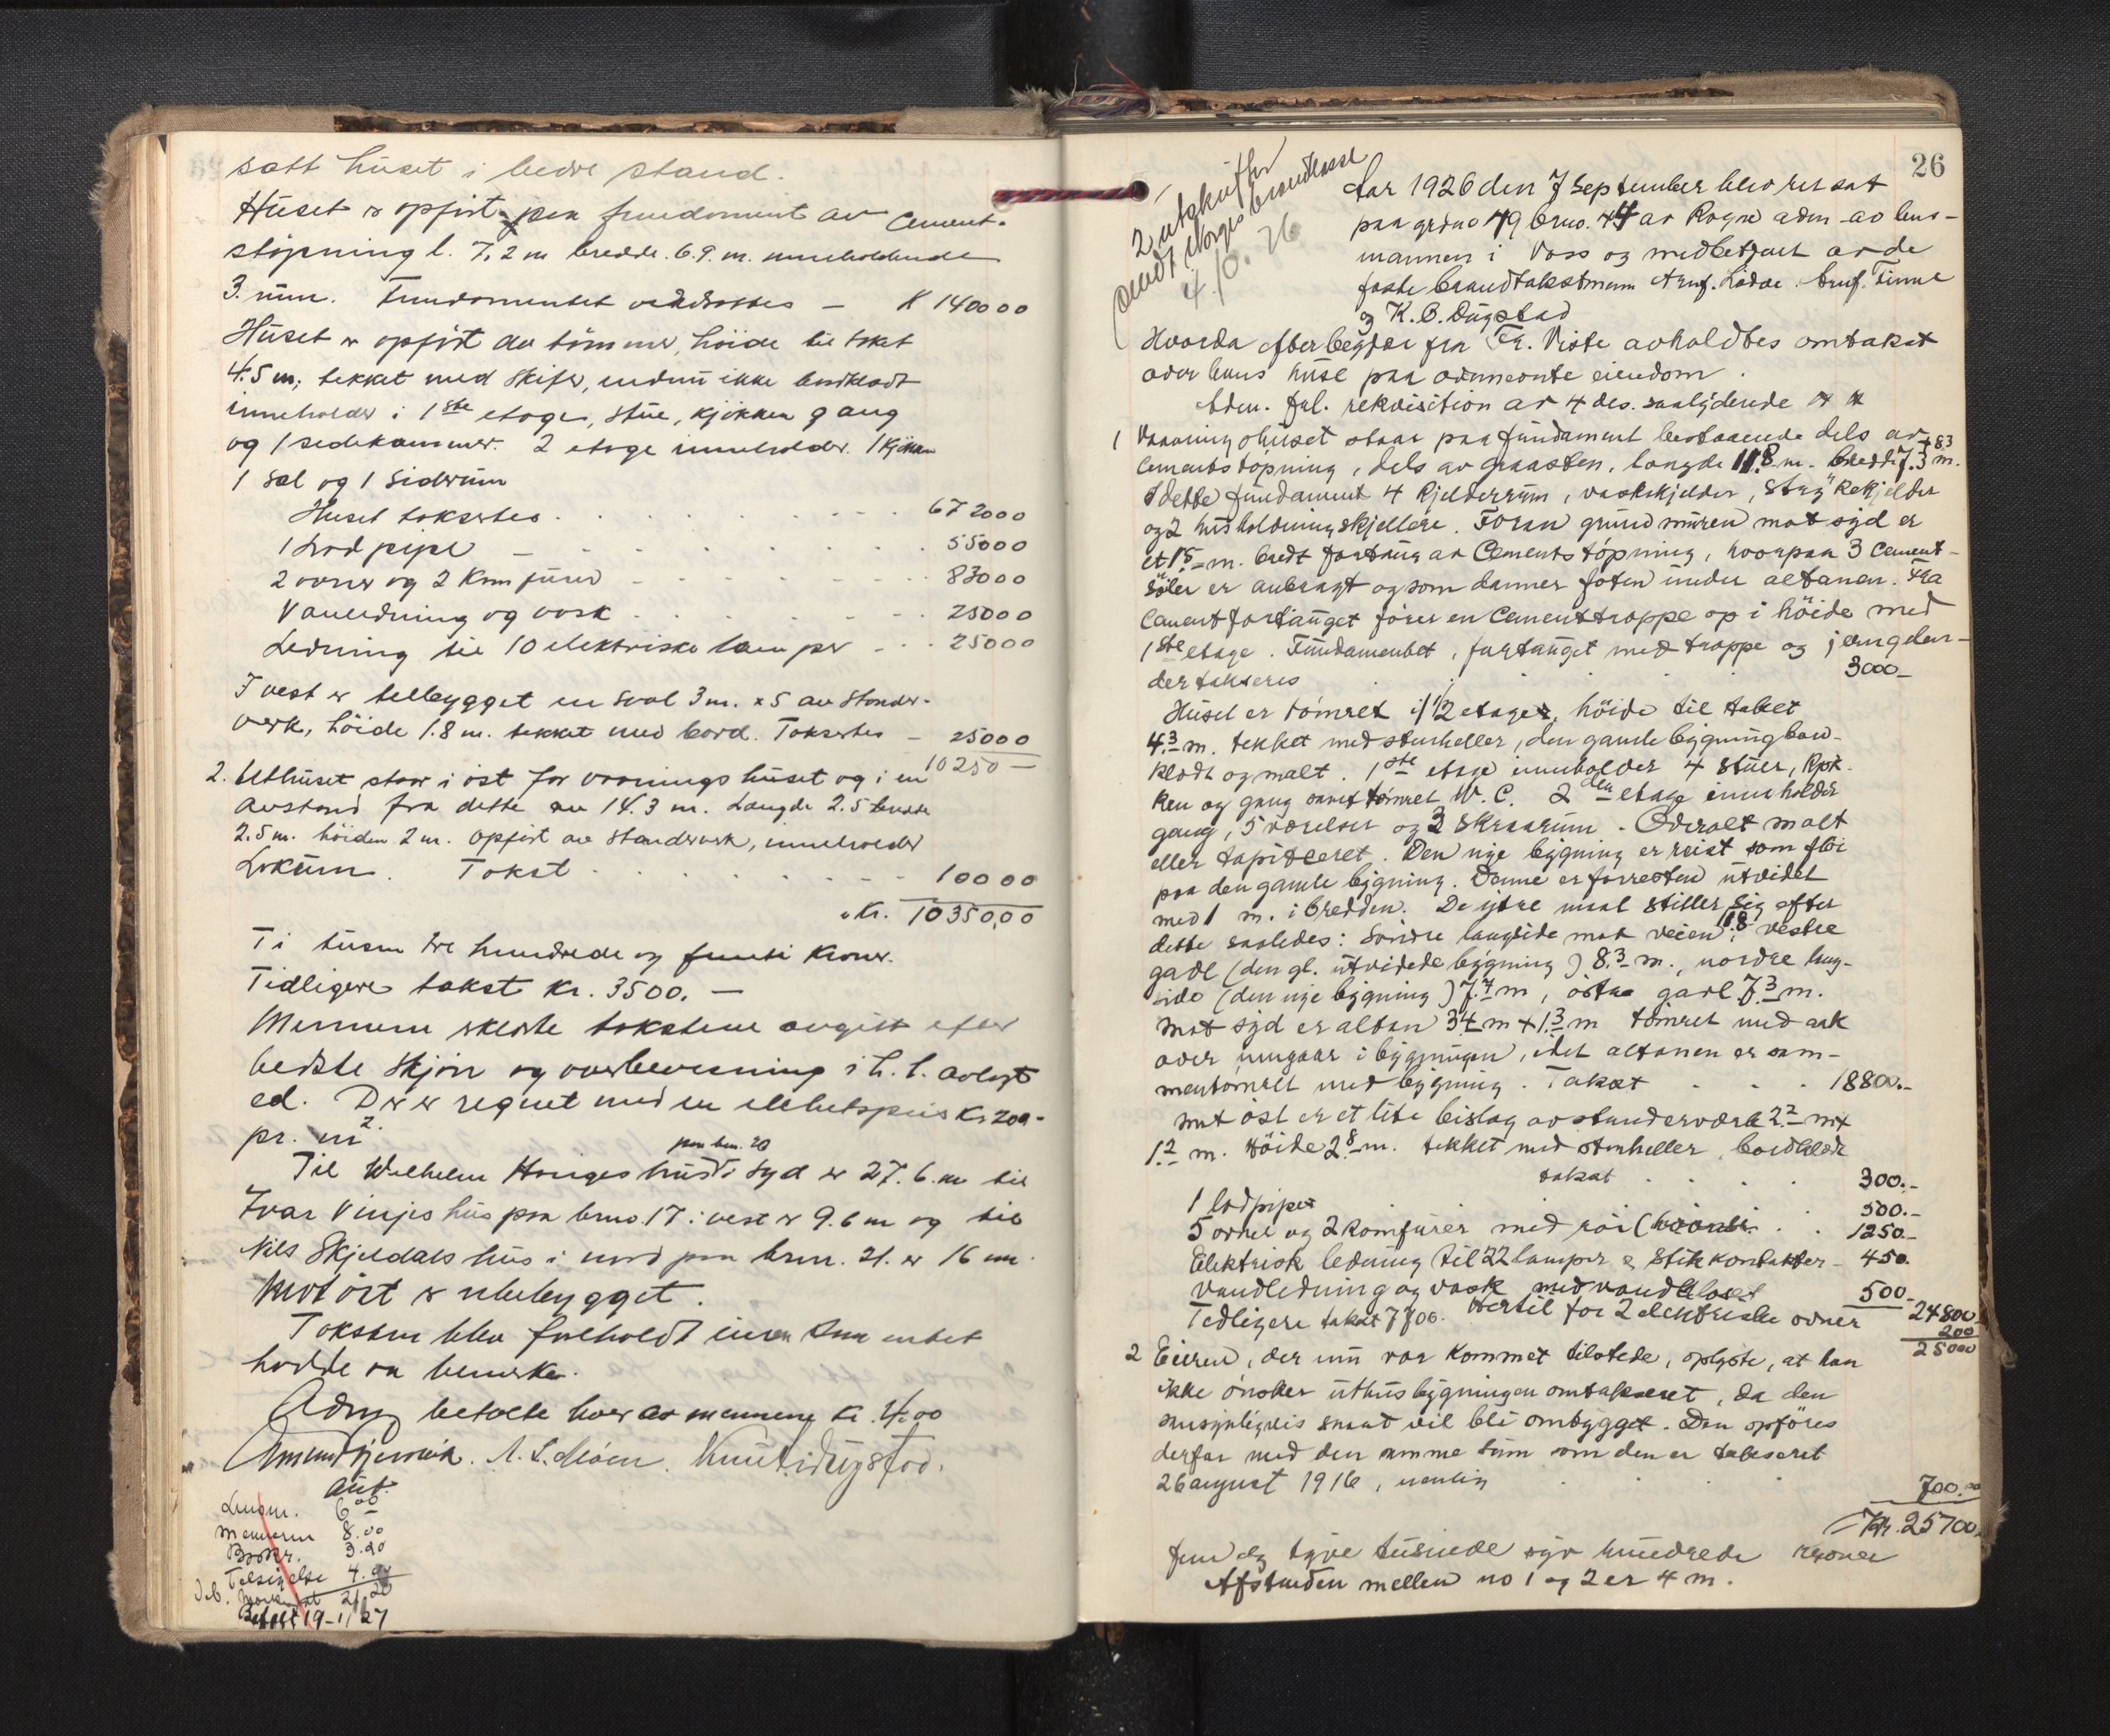 satt huset i bedre stand.
Huset er opført paa fundament av Cement-
støpning l. 7,2 m bredde. 6.9. m. inneholdende
3. rum. Fundamentet verdsættes — K 140000
Huset er opført av tømmer, høide til taket
4.5 m; tekket med skifer, endnu ikke bordklædt
inneholder i 1ste etage, stue, kjøkken gang
og 1 sidekammer. 2 etage inneholder. 1 kjøkken
1 sal og 1 siderum
Huset takseres. 672000
1 Lodpipe 55000
2 ovner og 2 Komfurer 83000
Vandledning og vask 25000
Ledning til 10 elektriske lamper 25000
I vest er tilbygget en sval 3 m. x 5 av stender-
verk, høide 1.8 m. tekket med bord. Takseres — 25000
10250 —
2. Uthuset staar i øst for vaaningshuset og i en
avstand fra dette av 14.3 m. Længde 2.5 bredde
2.5 m. høiden 2 m. opført av stenderverk, inneholder
Lokum. Takst 10000
Kr. 10350,00
Ti tusen tre hundrede og femti kroner.
Tidligere takst kr. 3500. —
Mennene erklærte taksterne avgitt efter
bedste skjøn og overbevisning i h. t. avlagt
ed. Der er regnet med en enhetspris Kr 200-
pr. m².
paa brn. 20
Til Wilhelm Honges hus i syd er 27.6. m til
Ivar Vinjes hus paa brno. 17 i vest er 9.6 m og til
Nils Skjeldals hus i nord paa brn. 21. er 16 m.
Mot øst er ubebygget.
Taksten blev foreholdt eieren som intet
hadde at bemerke.
betalte hver av mennene kr. 4.00
A. L. Moen. Knut Dugstad.
Aut.
Lensm. 6.00
Mennene 8.00
Bookr. 3.20
Tilsigelse 4.00
21,20
Betalt 19-1/27
26
2 utskrifter
sendt Norges brandkasse
4/10. 26
Aar 1926 den 7 September blev ret sat
paa grdno 49 brno. 44 av Rogne adm. av lens-
mannen i Voss og medbetjent av de
faste brandtakstmænn Arnf. Lødve. Brnf. Finne
og K. B. Dugstad
Hvorda efter begjær fra Fr. Viste avholdtes omtakst
over hans huse paa ovennevnte eiendom.
Adm. frl. rekvisition av 4 ds. saalydende * *
1 Vaaningshuset staar paa fundament bestaaende dels av + 83
cementstøpning, dels av graasten, længde 11.8 m. bredde 7.3 m.
I dette fundament 4 kjelderrum, vaskekjelder, strykekjelder
og 2 husholdningskjellere. Foran grundmuren mot syd er
et 1.5 m. bredt fortaug av Cementstøpning, hvorpaa 3 cement-
søiler er anbragt og som danner foten under altanen. Fra
Cementfortauget fører en cementtrappe op i høide med
1ste etage. Fundamentet, fortauget med trappe og jerngelæn-
der takseres 3000 —
Huset er tømret i 1 1/2 etager, høide til taket
4.3 m. tekket med stenheller, den gamle bygning bord-
klædt og malt. 1ste etage inneholder 4 stuer, kjøk-
ken og gang samt tømret W. C. 2den etage inneholder
gang, 5 værelser og 2 skraarum. Overalt malt
eller tapitceret. Den nye bygning er reist som fløi
paa den gamle bygning. Denne er forresten utvidet
med 1 m. i bredden. De ydre maal stiller sig efter
dette saaledes: Søndre langside mot veien 11.8 vestre
gavl (den gl. utvidede bygning) 8.3 m., nordre lang-
side (den nye bygning) 7.4 m, østre gavl 7.3 m.
mot syd er altan 3.4 m + 1.3 m tømret med aak
over inngaar i bygningen, idet altanen er sam-
mentømret med bygning. Takst 18800.-
mot øst er et lite bislag av stenderværk 2.2 m x
1.2 m. Høide 2.8 m. tekket med stenheller, bordklædt
takst 300.-
1 lodpipe 500.-
5 ovner og 2 Komfurer med rør 1250.-
Elektrisk ledning til 22 lamper & stikkontakter - 450.
Vandledning og vask med vandkloset 500.
Tidligere takst 7700. Hertil for 2 elektriske ovner 24800
200
25000
2 Eieren, der nu var kommet tilstede, oplyste, at han
ikke ønsker uthusbygningen omtakseret, da den
sansynligvis snart vil bli ombygget. Den opføres
derfor med den samme sum som den er takseret
26 august 1916, nemlig 700.00
Kr. 25700.
fem og tyve tusinde syv hundrede kroner
Afstanden mellem no 1 og 2 er 4 m.